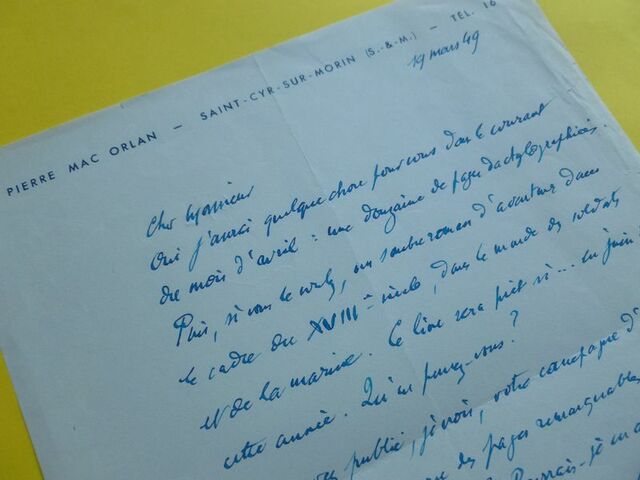 PIERRE MAC ORLAN — SAINT-CYR-SUR-MORIN (S.-&-M.) — TÉL. 16
19 mars 49
Cher Monsieur
Oui j'aurai quelque chose pour vous dans le courant
du mois d'avril : une douzaine de pages dactylographiées.
Puis, si vous le voulez, un sombre roman d'aventure dans
le cadre du XVIIIe siècle, dans le monde des soldats
et de la marine. Ce livre sera prêt si... en juin
cette année. Qu'en pensez-vous ?
publié, je crois, votre campagne d'
des pages remarquables
Pourrais-je en a